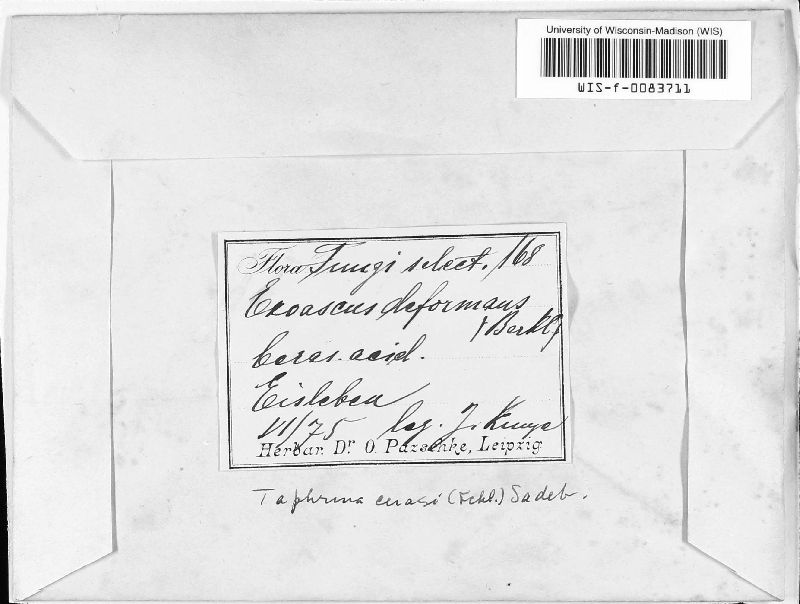 University of Wisconsin-Madison (WIS)
WIS-f-0083711
Flora Fungi select. 168
Exoascus deformans
(Berkl)
Ceras. acid.
Eisleben
VI/75 leg. J. Kunze
Herbar. Dr. O. Pazschke, Leipzig.
Taphrina cerasi (Fckl.) Sadeb.